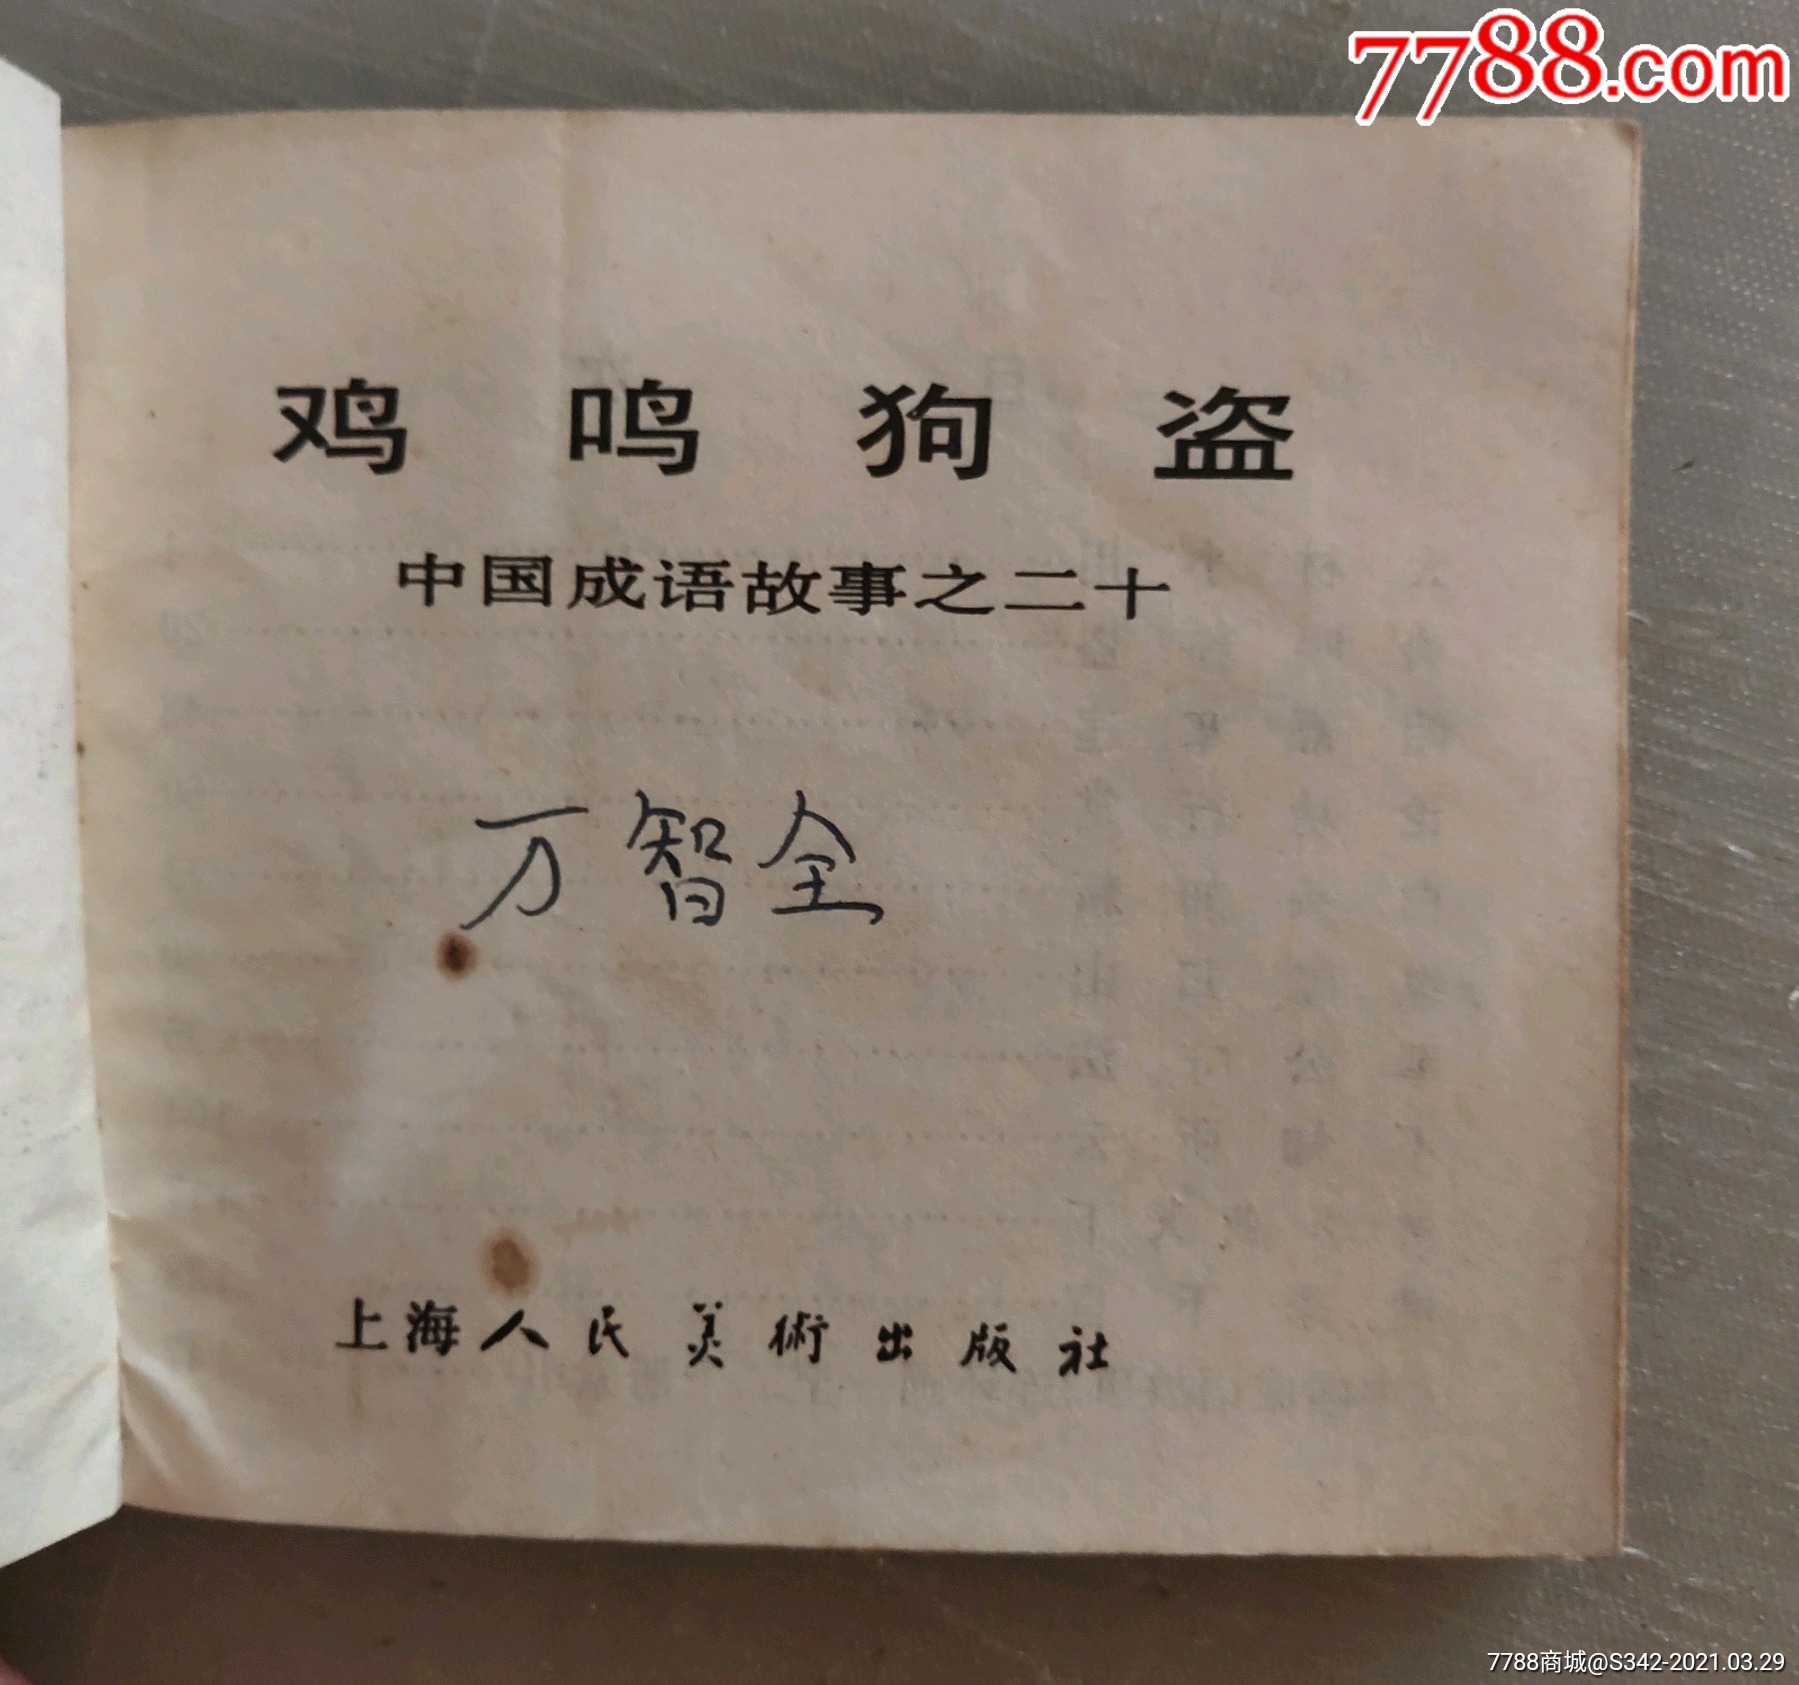 7788.com
鸡鸣狗盗
中国成语故事之二十
万智全
上海人民美術出版社
7788商城@S342-2021.03.29